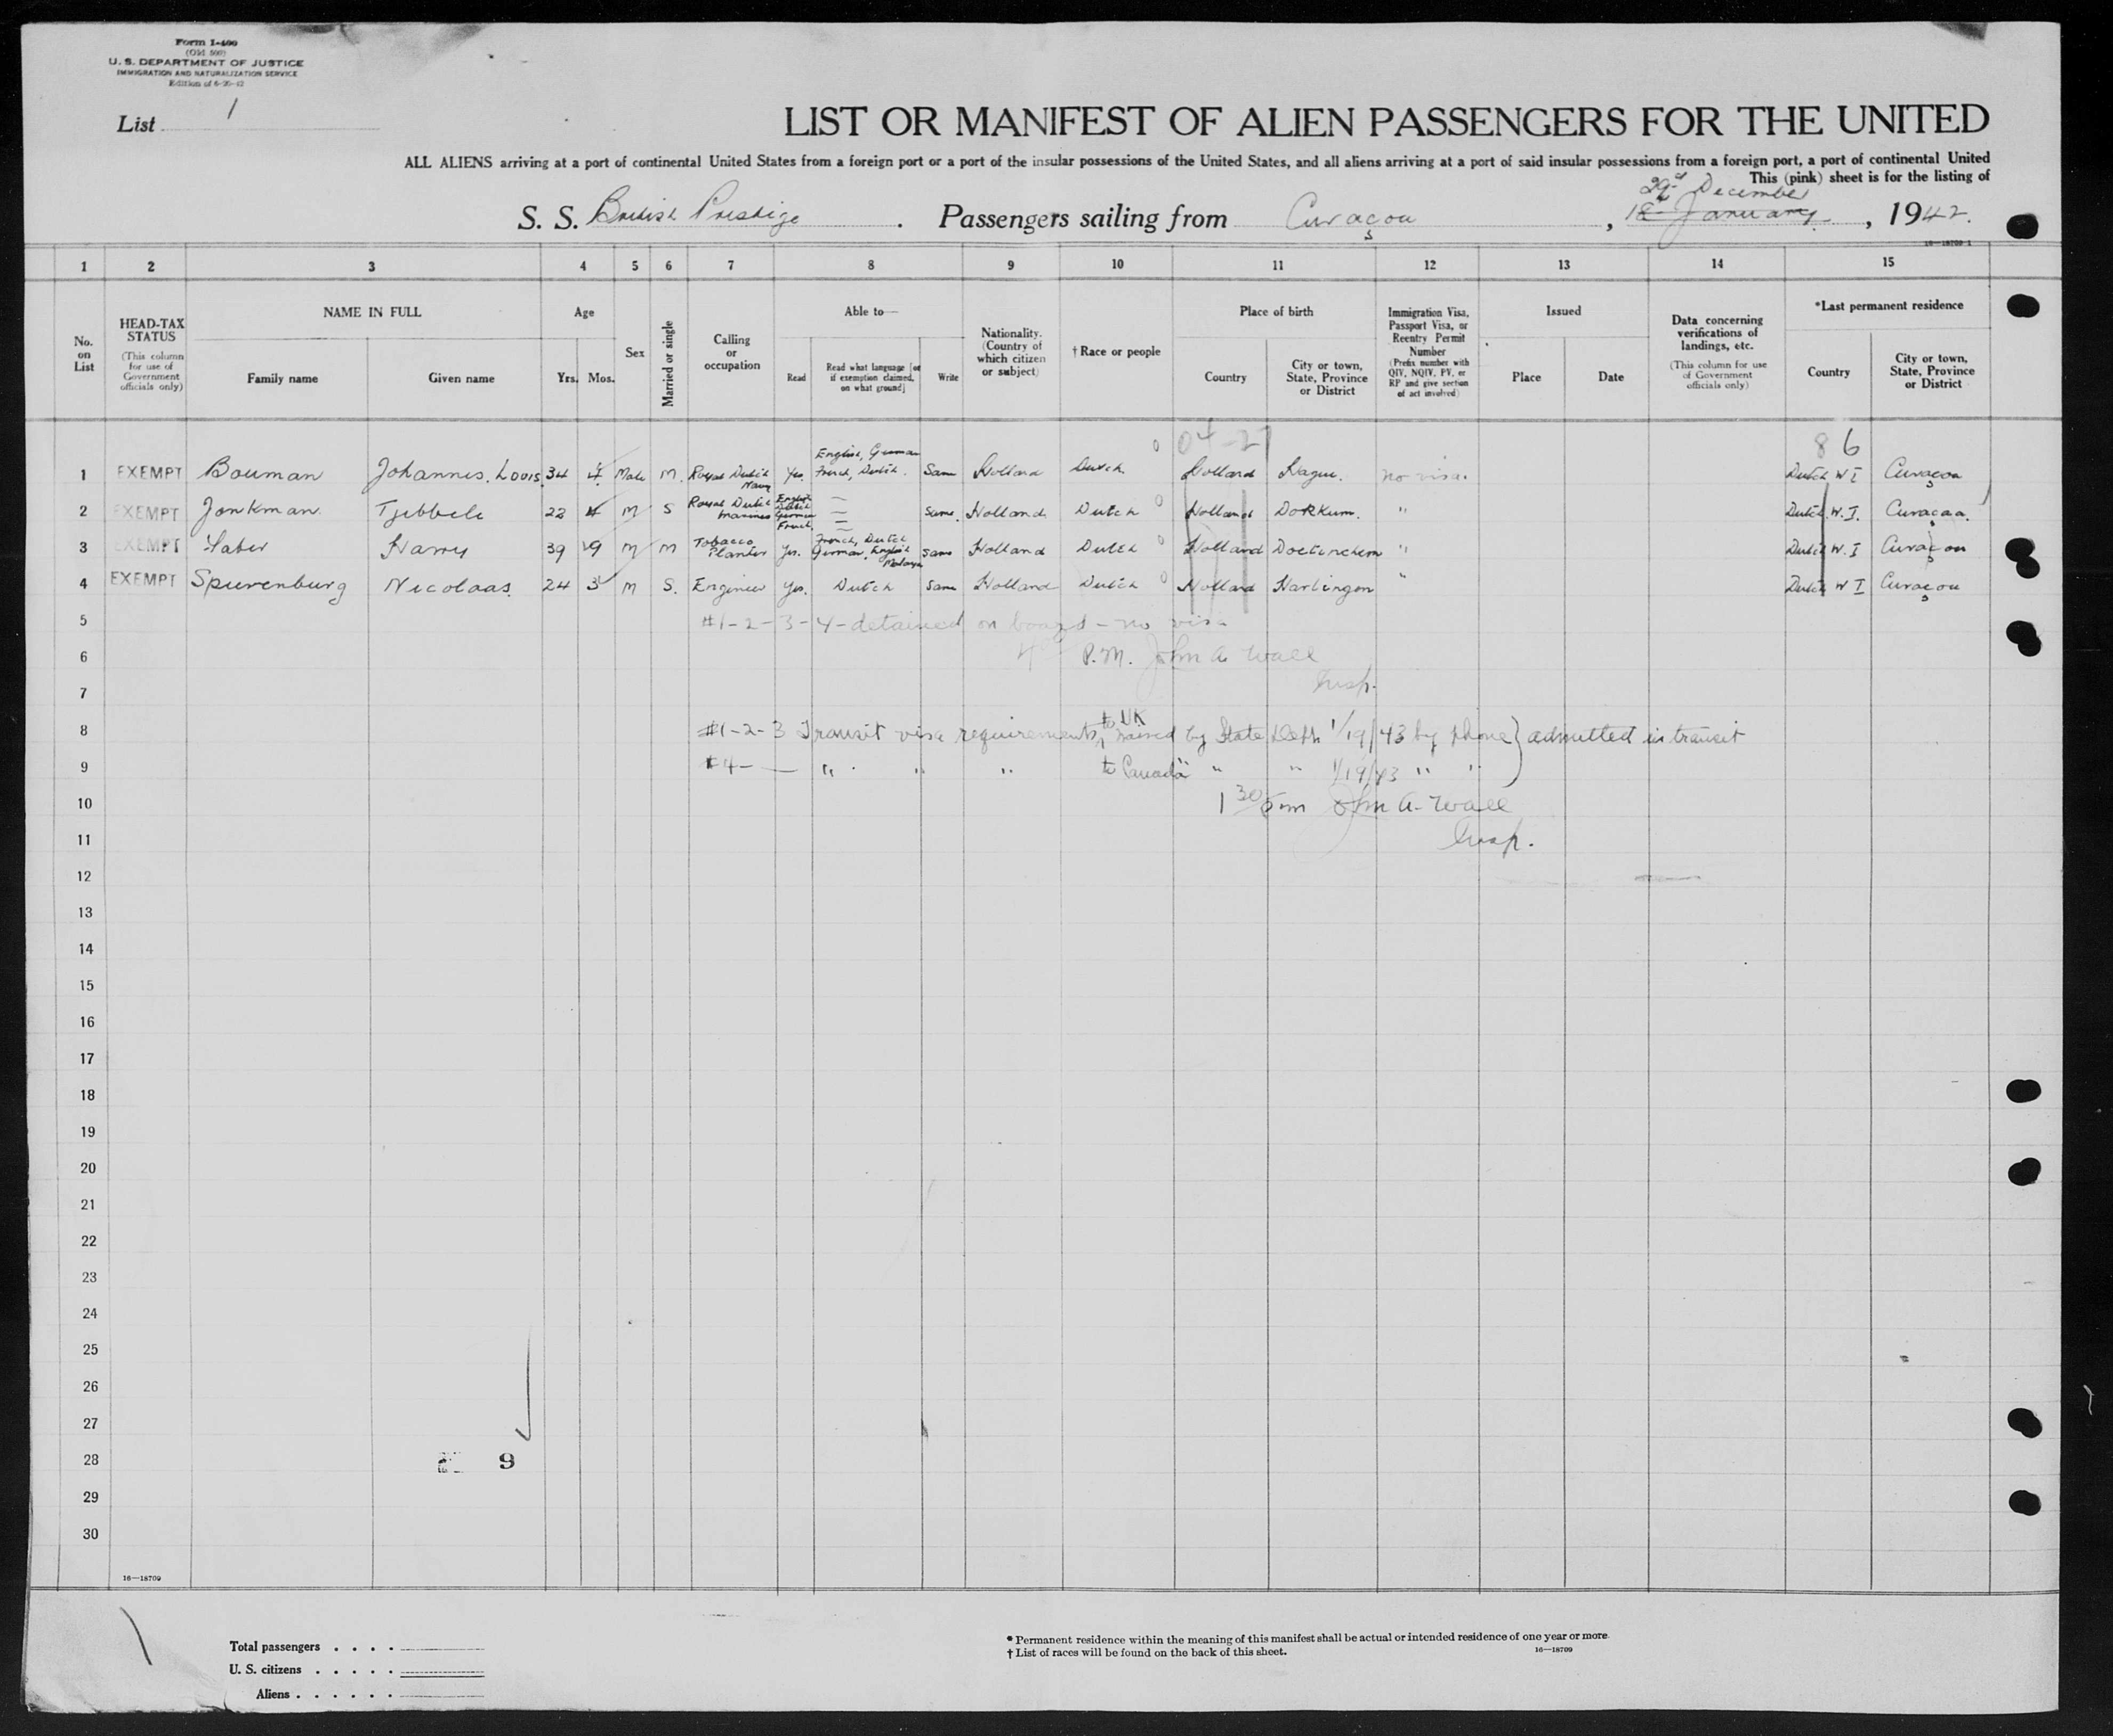 Form I-400
(Old 500)
U. S. DEPARTMENT OF JUSTICE
IMMIGRATION AND NATURALIZATION SERVICE
Edition of 6-20-42
List 1
LIST OR MANIFEST OF ALIEN PASSENGERS FOR THE UNITED
ALL ALIENS arriving at a port of continental United States from a foreign port or a port of the insular possessions of the United States, and all aliens arriving at a port of said insular possessions from a foreign port, a port of continental United
This (pink) sheet is for the listing of
29th December
S. S. British Prestige . Passengers sailing from Curaçou , 18th January , 1942.
16-18709-1
1 2 3 4 5 6 7 8 9 10 11 12 13 14 15
No. on List
HEAD-TAX STATUS
(This column for use of Government officials only)
NAME IN FULL
Family name Given name
Age
Yrs. Mos.
Sex
Married or single
Calling or occupation
Able to—
Read
Read what language [or if exemption claimed, on what ground]
Write
Nationality. (Country of which citizen or subject)
†Race or people
Place of birth
Country
City or town, State, Province or District
Immigration Visa, Passport Visa, or Reentry Permit Number
(Prefix number with QIV, NQIV, PV, or RP and give section of act involved)
Issued
Place Date
Data concerning verifications of landings, etc.
(This column for use of Government officials only)
*Last permanent residence
Country
City or town, State, Province or District
04-2 86
1 EXEMPT Bouman Johannis. Louis 34 4 Male M. Royal Dutch Navy Yes English, German French, Dutch. Same Holland Dutch Holland Hague. no visa. Dutch W I Curaçoa
2 EXEMPT Jonkman. Tjebbele 22 4 M S Royal Dutch marines English Dutch German French Same. Holland. Dutch Holland Dokkum. " Dutch. W. I. Curaçaa.
3 EXEMPT Faber Harry 39 9 M M Tobacco Planter Yes. French, Dutch German, English Malayan Same Holland Dutch Holland Doetinchem " Dutch W. I Curaçou
4 EXEMPT Spurenburg Nicolaas. 24 3 M S. Engineer Yes. Dutch Same Holland Dutch Holland Harlingen " Dutch W I Curaçou
5 #1-2-3-4-detained on board - no visa
6 P.M. John A Wall
7 Insp.
to UK
8 #1-2-3 Transit visa requirements waived by State Dept 1/19/43 by phone } admitted in transit
9 #4- — " " " to Canada " " " 1/19/43 " "
10 1 30 pm John A. Wall
11 Insp.
12
13
14
15
16
17
18
19
20
21
22
23
24
25
26
27
28 9
29
30
16—18709
Total passengers . . . .
U. S. citizens . . . . .
Aliens . . . . . .
* Permanent residence within the meaning of this manifest shall be actual or intended residence of one year or more.
† List of races will be found on the back of this sheet. 16—18709